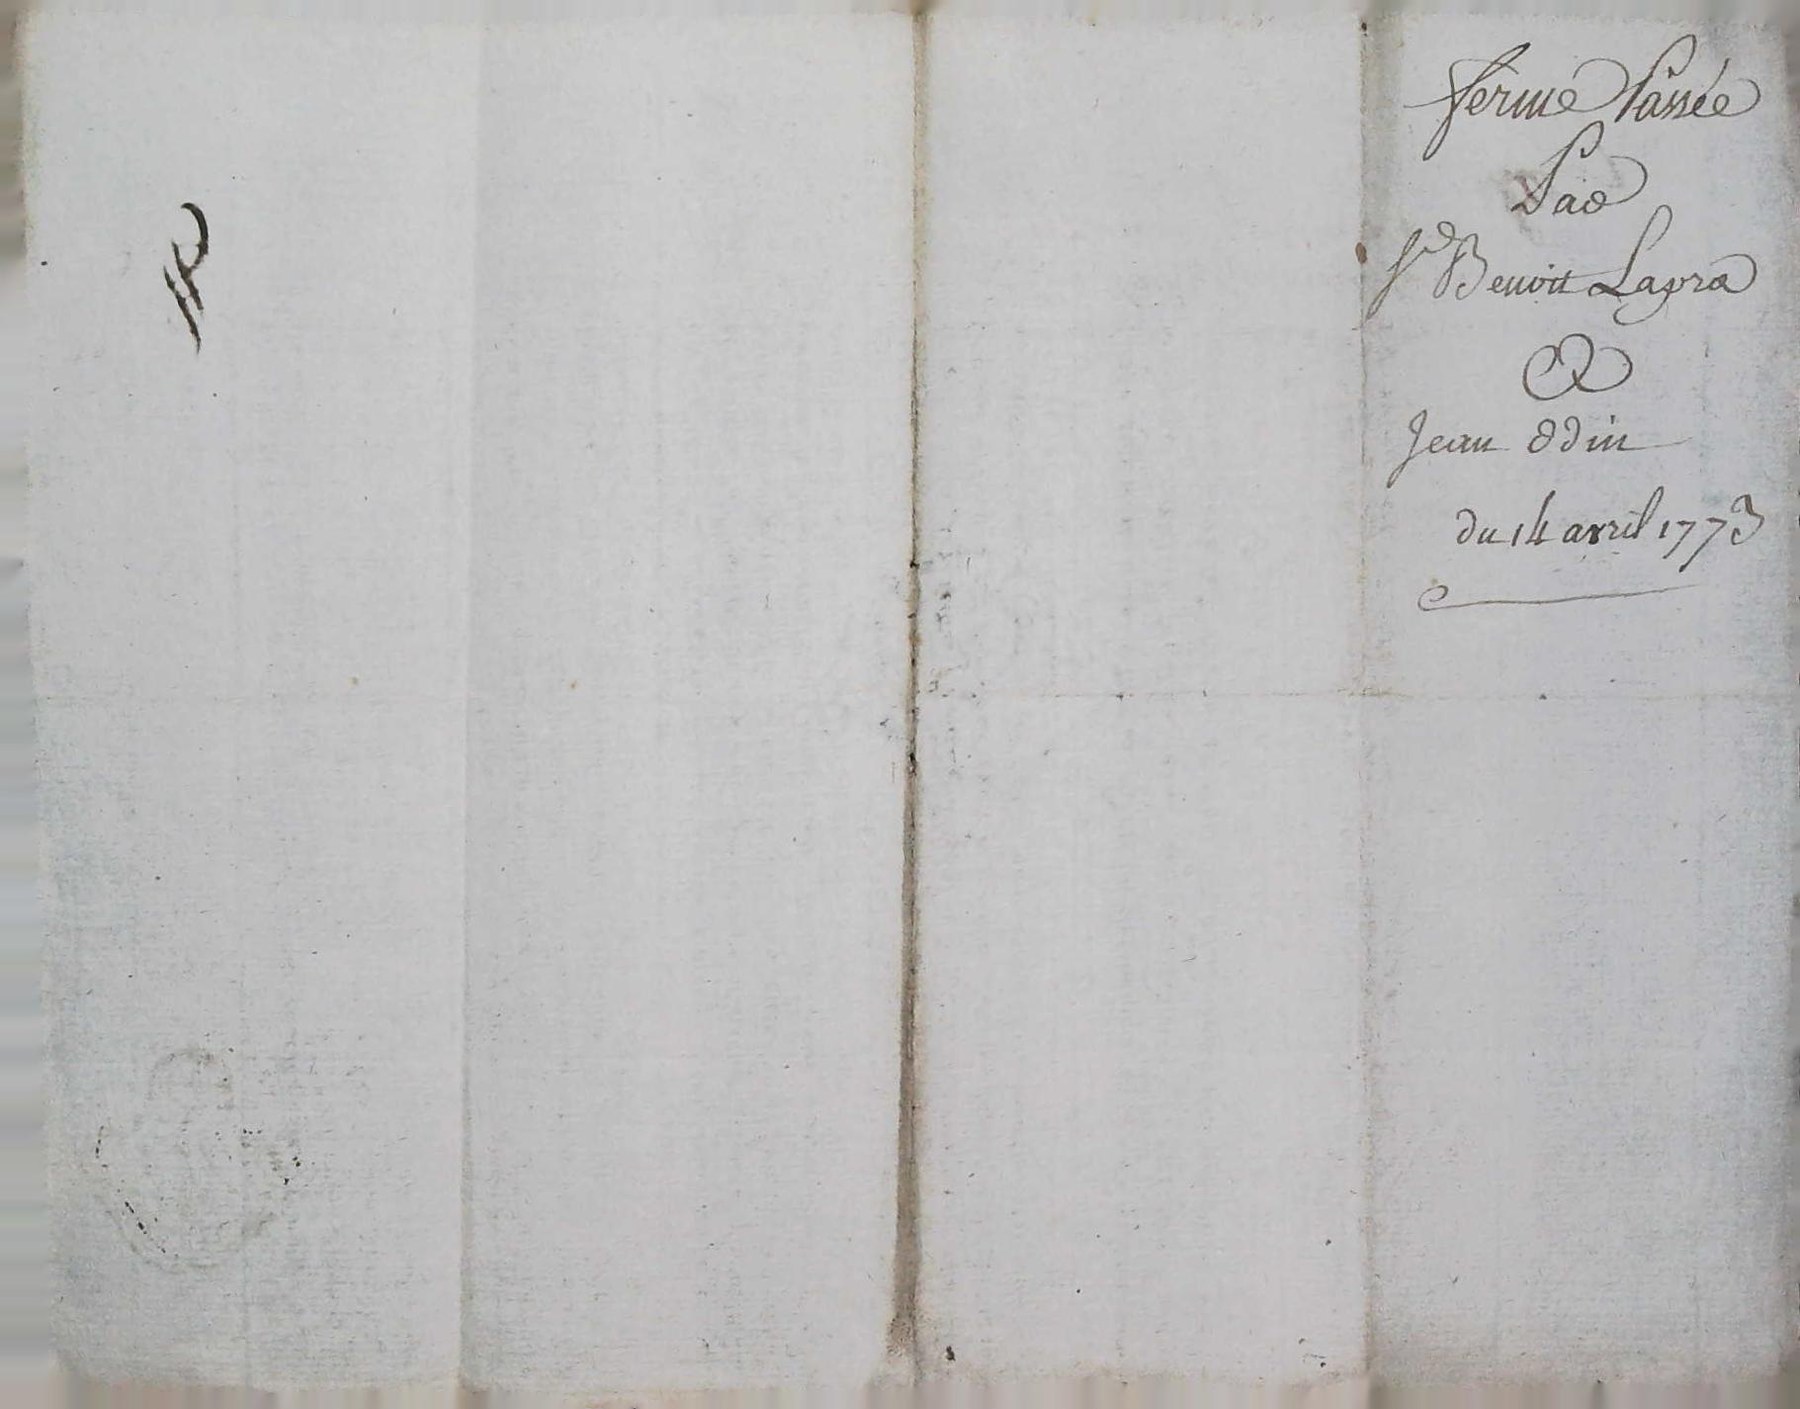 ferme Passée
Par
Sr Benoit Lapra
&
Jean Odin
du 14 avril 1773